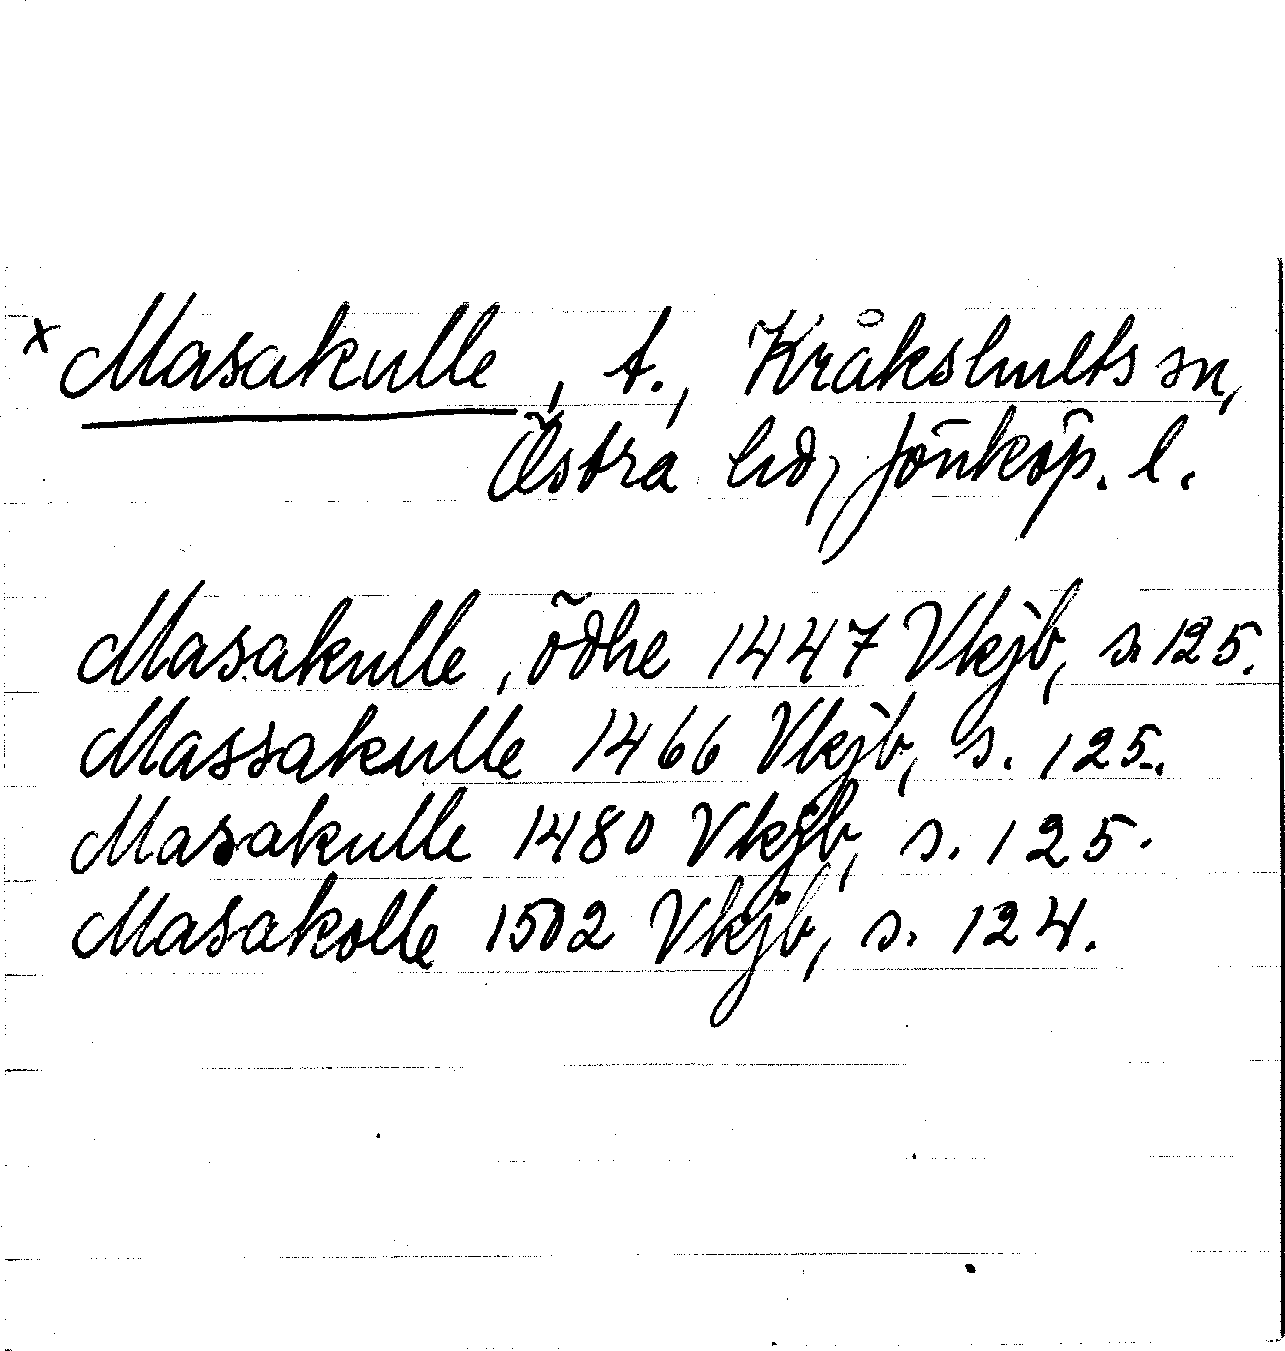 x Masakulle, t., Kråkshults sn,
Östra hd, Jönköp. l.
Masakulle, ödhe 1447 Vkjb, s. 125.
Massakulle 1466 Vkjb, s. 125.
Masakulle 1480 Vkjb, s. 125.
Masakolle 1502 Vkjb, s. 124.